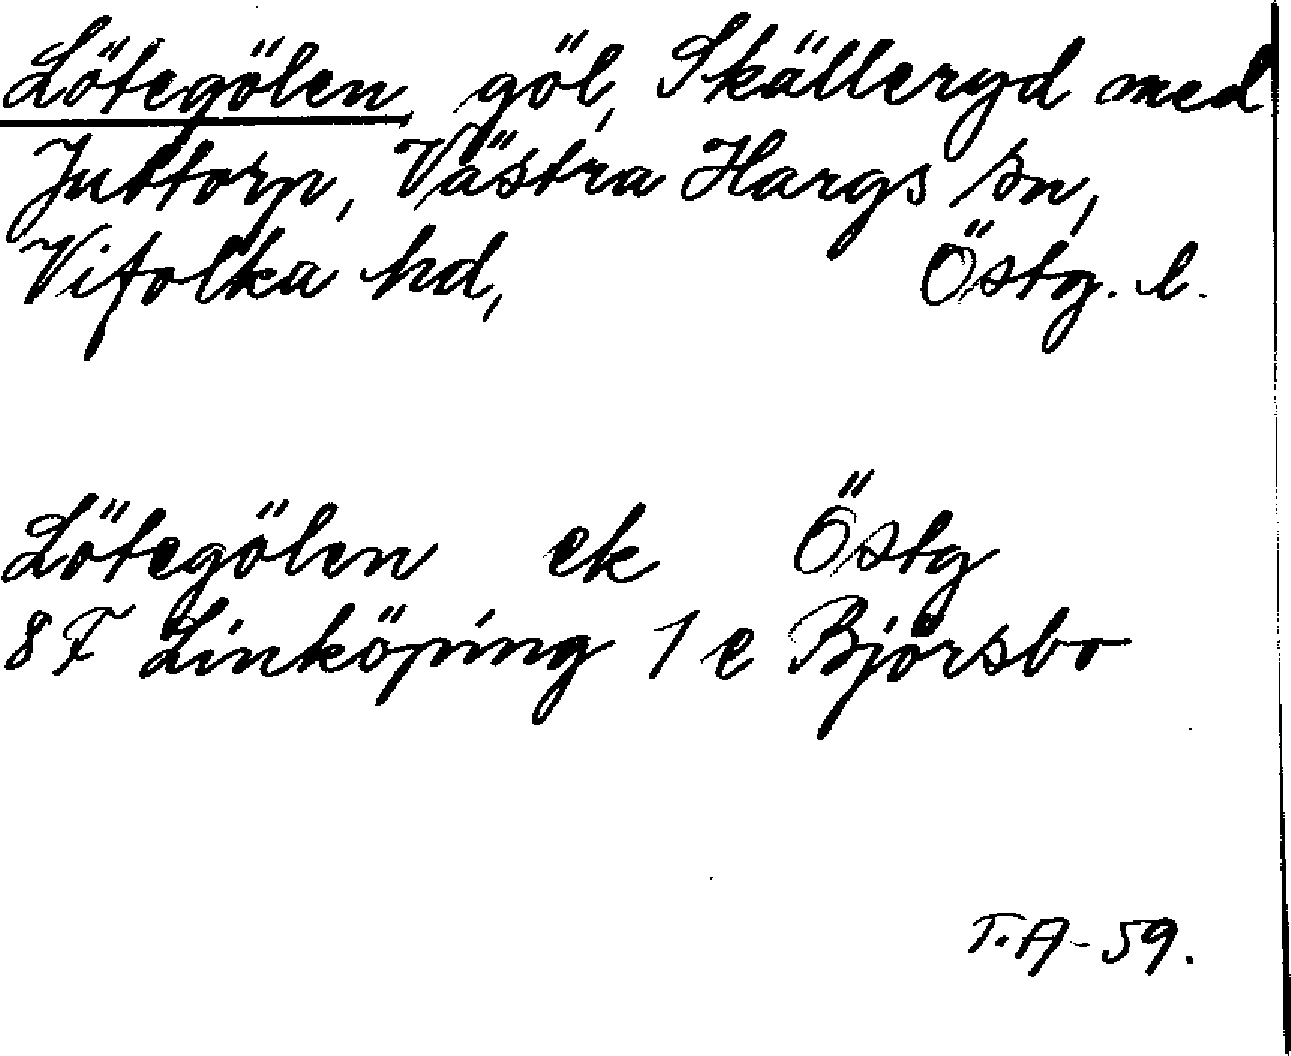 Lötegölen, göl, Skälleryd med
Juttorp, Västra Hargs sn,
Vifolka hd, Östg. l.
Lötegölen ek Östg
8F Linköping 1 e Björsbo
T.A-59.